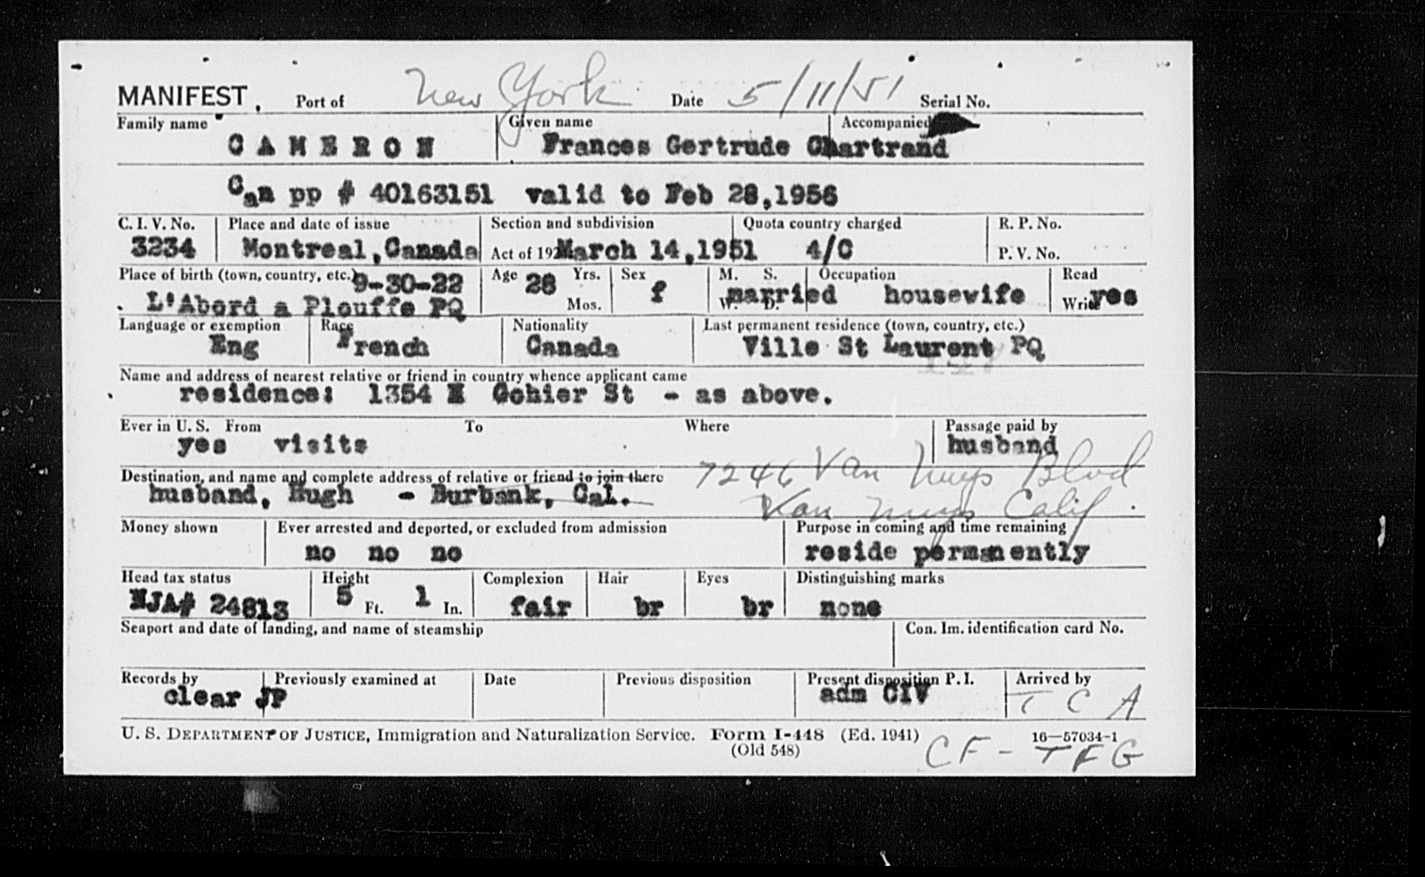 MANIFEST, Port of New York Date 5/11/51 Serial No.
Family name Given name Accompanied
CAMERON Frances Gertrude Chartrand
Can pp # 40163151 valid to Feb 28,1956
C. I. V. No. Place and date of issue Section and subdivision Quota country charged R. P. No.
3234 Montreal,Canada Act of 192 March 14,1951 4/C P. V. No.
Place of birth (town, country, etc.) 9-30-22 Age 28 Yrs. Sex f M. S. Occupation Read
L'Abord a Plouffe PQ Mos. W. D. married housewife Write yes
Language or exemption Race Nationality Last permanent residence (town, country, etc.)
Eng French Canada Ville St Laurent PQ
Name and address of nearest relative or friend in country whence applicant came
residence: 1354 Gohier St - as above.
Ever in U. S. From To Where Passage paid by
yes visits husband
Destination, and name and complete address of relative or friend to join there 7246 Van Nuys Blvd
husband, Hugh - Burbank, Cal. Van Nuys Calif.
Money shown Ever arrested and deported, or excluded from admission Purpose in coming and time remaining
no no no reside permanently
Head tax status Height Complexion Hair Eyes Distinguishing marks
NJA# 24813 5 Ft. 1 In. fair br br none
Seaport and date of landing, and name of steamship Con. Im. identification card No.
Records by Previously examined at Date Previous disposition Present disposition P. I. Arrived by
clear JP adm CIV T C A
U. S. DEPARTMENT OF JUSTICE, Immigration and Naturalization Service. Form I-448 (Ed. 1941) 16—57034-1
(Old 548) CF - TFG